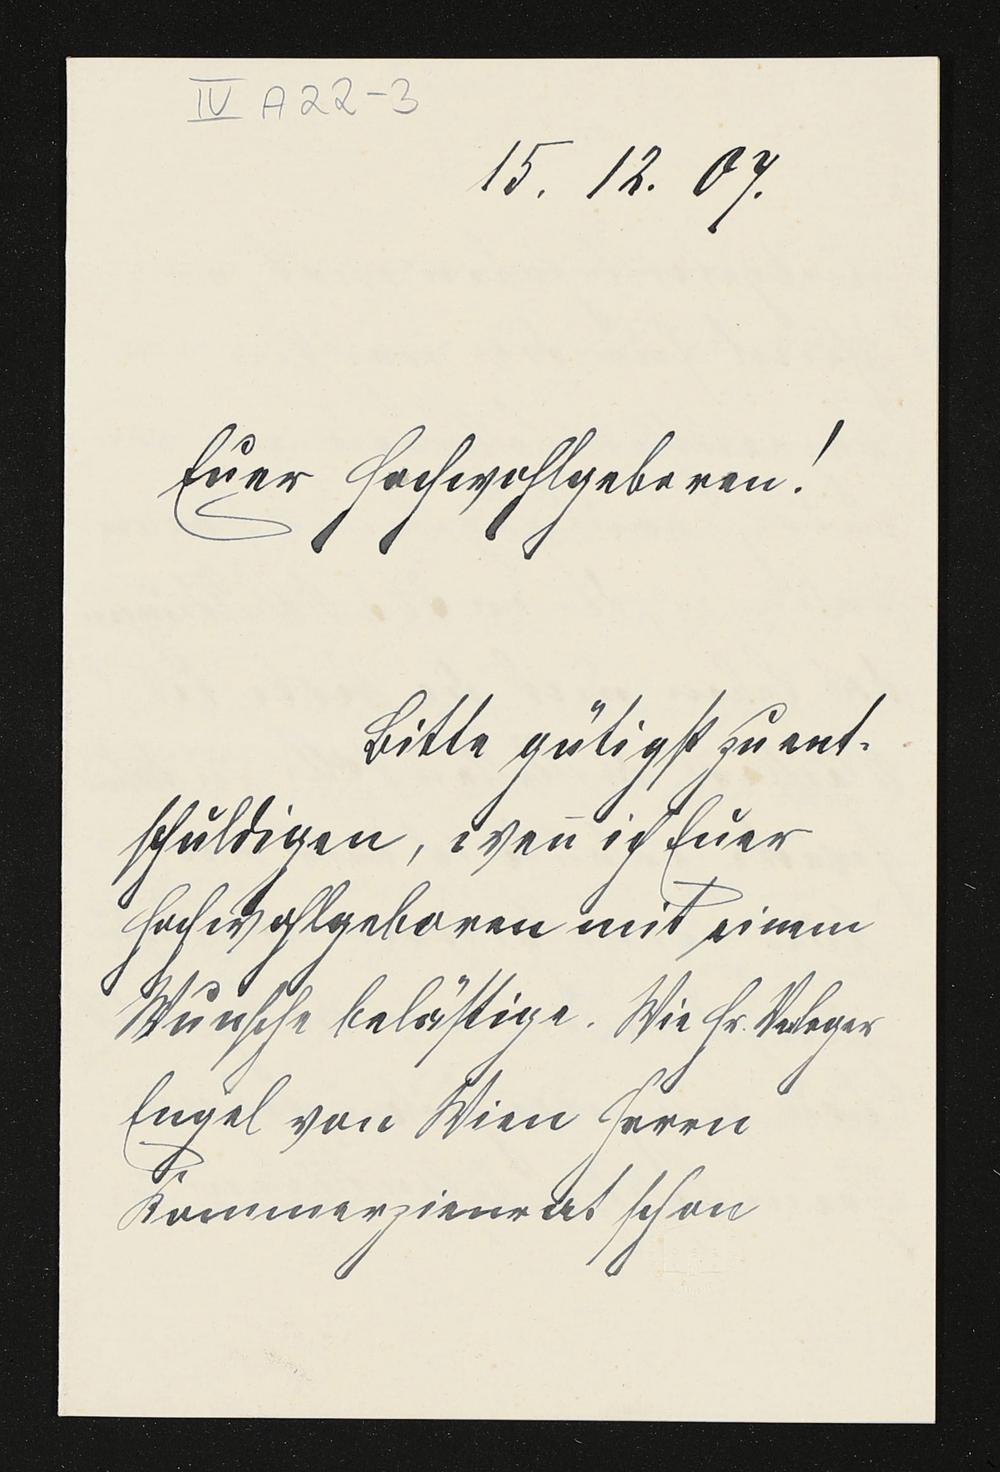 IV A22-3
15. 12. 07.
Euer Hochwohlgeboren!
Bitte gütigst zu ent-
schuldigen, wen̅ ich Euer
Hochwohlgeboren mit einem
Wunsche belästige. Wie Hr. Verleger
Engel von Wien Herrn
Kommerzienrat schon